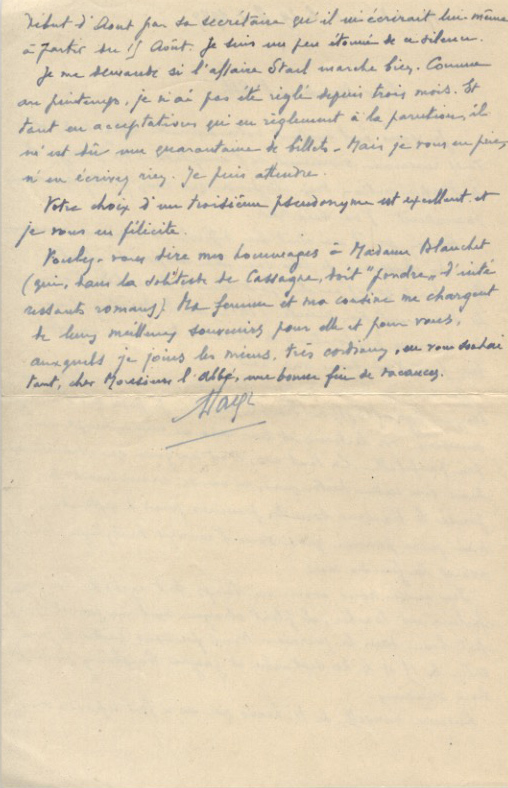 début d'Aout par sa secrétaire qu'il m'écrirait lui-même
à partir du 15 Août. Je suis un peu étonné de ce silence.
Je me demande si l'affaire Stael marche bien. Comme
au printemps, je n'ai pas été réglé depuis trois mois. Et
tant en acceptations qu'en règlement à la parution, il
m'est dû une quarantaine de billets. Mais je vous en prie,
n'en écrivez rien. Je puis attendre.
Votre choix d'un troisième pseudonyme est excellent et
je vous en félicite.
Voulez-vous dire mes hommages à Madame Blanchet
(qui, dans la solitude de Cassagne, doit "pondre" d'inté
ressants romans). Ma femme et ma cousine me chargent
de leurs meilleurs souvenirs pour elle et pour vous,
auxquels je joins les miens, très cordiaux, en vous souhai
tant, cher Monsieur l'abbé, une bonne fin de vacances.